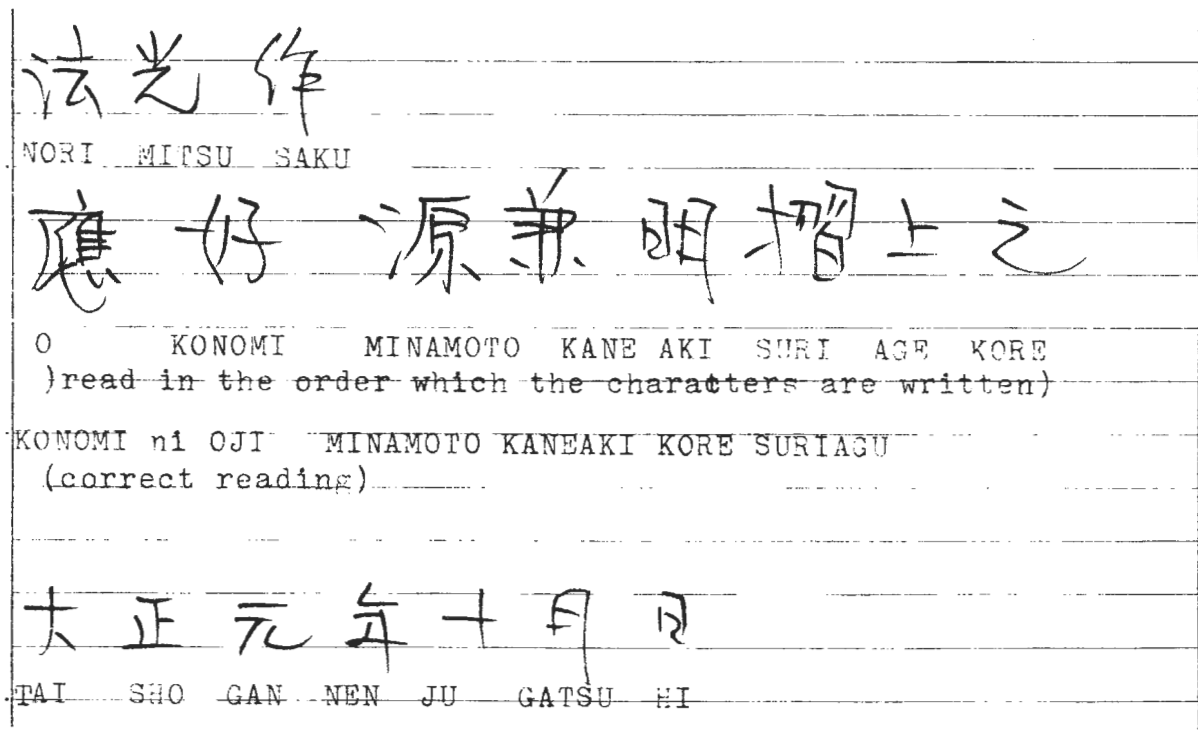 法光作
NORI MITSU SAKU
應好 源兼明摺上之
O KONOMI MINAMOTO KANE AKI SURI AGE KORE
)read in the order which the characters are written)
KONOMI ni OJI MINAMOTO KANEAKI KORE SURIAGU
(correct reading)
大正元年十月日
TAI SHO GAN NEN JU GATSU HI